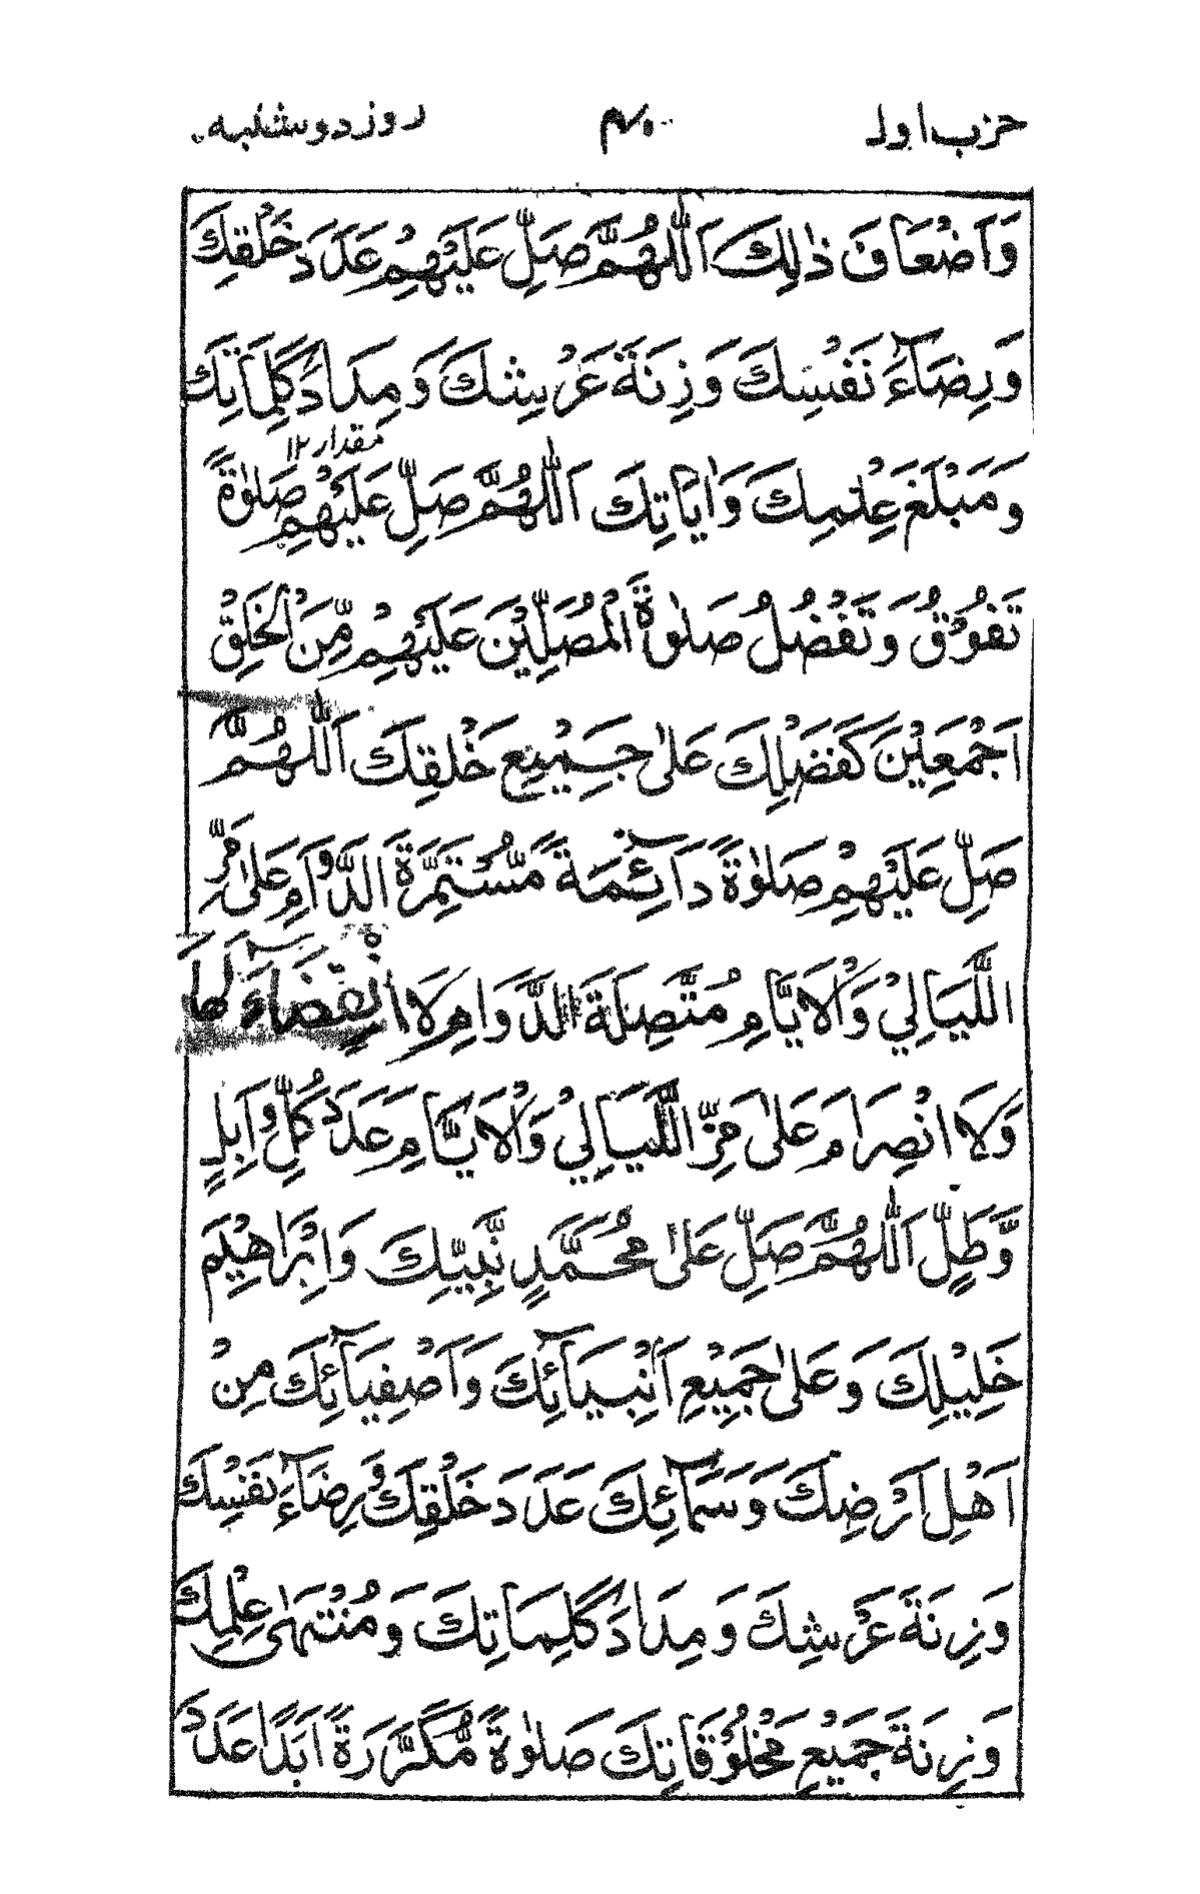 حزب اول
روز دوشنبه
وَاَضْعَافَ ذٰلِكَ اَللّٰهُمَّ صَلِّ عَلَيْهِمْ عَدَدَ خَلْقِكَ
وَرِضَآءَ نَفْسِكَ وَزِنَةَ عَرْشِكَ وَمِدَادَ كَلِمَاتِكَ
مقدار ۱۲
وَمَبْلَغَ عِلْمِكَ وَاٰيَاتِكَ اَللّٰهُمَّ صَلِّ عَلَيْهِمْ صَلٰوةً
تَفُوْقُ وَتَفْضُلُ صَلٰوةَ الْمُصَلِّيْنَ عَلَيْهِمْ مِّنَ الْخَلْقِ
اَجْمَعِيْنَ كَفَضْلِكَ عَلٰى جَمِيْعِ خَلْقِكَ اَللّٰهُمَّ
صَلِّ عَلَيْهِمْ صَلٰوةً دَآئِمَةً مُّسْتَمِرَّةَ الدَّوَامِ عَلٰى مَرِّ
اللَّيَالِيْ وَالْاَيَّامِ مُتَّصِلَةَ الدَّوَامِ لَا انْقِضَآءَ لَهَا
وَلَا انْصِرَامَ عَلٰى مَرِّ اللَّيَالِيْ وَالْاَيَّامِ عَدَدَ كُلِّ وَابِلٍ
وَّطَلٍّ اَللّٰهُمَّ صَلِّ عَلٰى مُحَمَّدٍ نَّبِيِّكَ وَاِبْرَاهِيْمَ
خَلِيْلِكَ وَعَلٰى جَمِيْعِ اَنْبِيَآئِكَ وَاَصْفِيَآئِكَ مِنْ
اَهْلِ اَرْضِكَ وَسَمَآئِكَ عَدَدَ خَلْقِكَ وَرِضَآءَ نَفْسِكَ
وَزِنَةَ عَرْشِكَ وَمِدَادَ كَلِمَاتِكَ وَمُنْتَهٰى عِلْمِكَ
وَزِنَةَ جَمِيْعِ مَخْلُوْقَاتِكَ صَلٰوةً مُّكَرَّرَةً اَبَدًا عَدَدَ